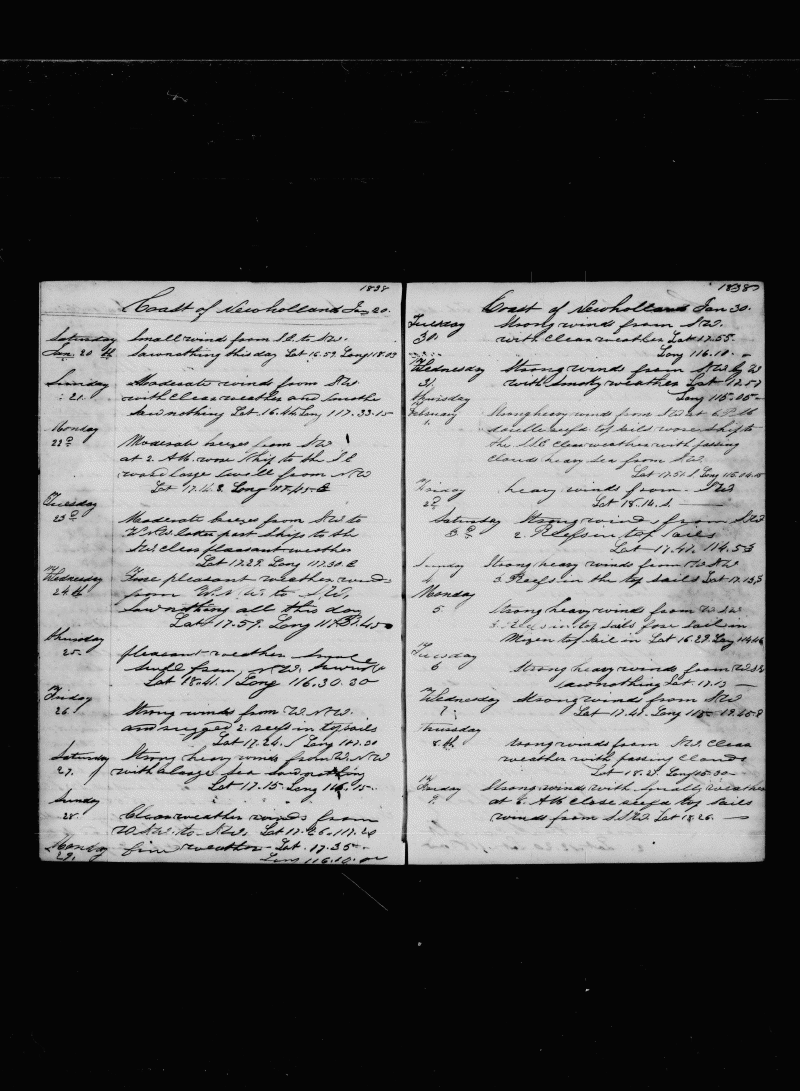 1838
Coast of New holland Jan 20.
Saturday Small wind from S.E. to N.W.
Jan 20th Saw nothing this day Lat 16.59 Long 118.03
Sunday Moderate winds from S.W.
21. with Clear weather and smooth
Saw nothing Lat. 16.46 Long 117.33.15
Monday
22d Moderate breezes from S.W
at 2. AM. wore Ship to the S.E
large Swell from S.W
Lat 17.14 S. Long 117.45 E
Tuesday
23d Moderate breezes from S.W to
W.S.W. latter part Ship to the
clear pleasant weather
Lat 17.29. Long 117.30 E
Wednesday Fine pleasant weather winds
24th from W. to S.W.
Saw nothing all this day
Lat 17.59. Long 117.45
Thursday
25. pleasant weather
Swell from S.W.
Lat 18.41. Long 116.30.00
Friday
26 Strong winds from W.S.W.
and rugged 2. reefs in topsails
Lat 17.24. S Long 117.20
Saturday Strong heavy winds from W.S.W
27. with a large Sea Saw nothing
Lat 17.15 Long 116.15.
Sunday
28. Clear weather winds from
W.S.W. to S.W. Lat 17.26. 117.20
Monday fine weather - Lat. 17.35
29. Long 116.10.00
1838
Coast of New holland Jan 30.
Tuesday Strong winds from S.W.
30. with Clear weather Lat 17.55.
Long 116.10.
Wednesday Strong winds from S.W by W
31 with Smoky weather Lat 17.57
Thursday Long 115.05
February Strong heavy winds from S.W at 6 PM
1. double reefd top Sails wore Ship to
the Clear weather with passing
Clouds heavy Sea from S.W
Lat 17.51 S Long 115.04.15
Friday heavy winds from S.W
2d Lat 18.14 S.
Saturday Strong winds from S.W
3d 2. Reefs in top Sails
Lat 17.47. 114.53
Sunday Strong heavy winds from S.W
4 3. Reefs in the top Sails Lat 17.13
Monday
5 Strong heavy winds from W.S.W
3. Reefs in top Sails fore Sail in
Mizen top Sail in Lat 16.29 Long 114.46
Tuesday
6 Strong heavy winds from W.S.W
saw nothing Lat. 17.13
Wednesday Strong winds from S.W
7 Lat 17.41. Long 115
Thursday
8th Strong winds from S.W. Clear
weather with passing Clouds
Lat 18.2. Long 115.30
Friday Strong winds with Squally weather
9. at 2. AM Close reefd top Sails
winds from S.S.W. Lat 18.26.